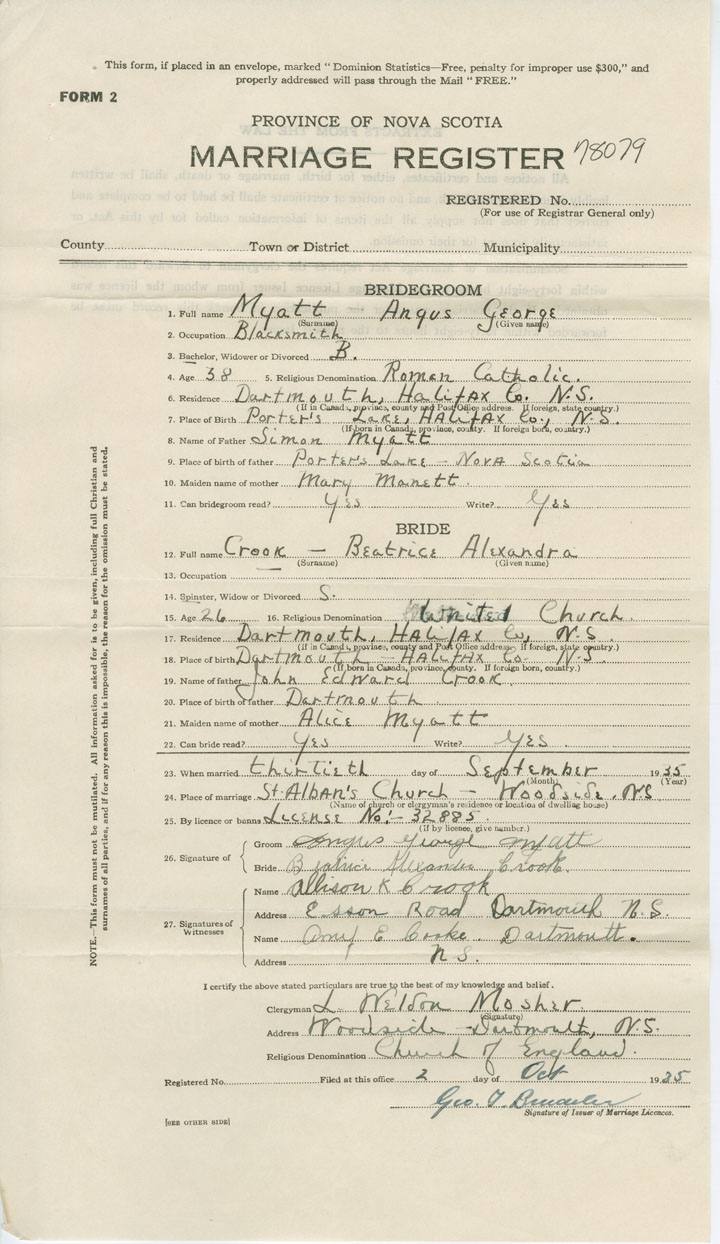 This form, if placed in an envelope, marked "Dominion Statistics—Free, penalty for improper use $300," and
properly addressed will pass through the Mail "FREE."
FORM 2
PROVINCE OF NOVA SCOTIA
MARRIAGE REGISTER 78079
REGISTERED No.
(For use of Registrar General only)
County Town or District Municipality
BRIDEGROOM
1. Full name Myatt — Angus George
(Surname) (Given name)
2. Occupation Blacksmith
3. Bachelor, Widower or Divorced B.
4. Age 38 5. Religious Denomination Roman Catholic.
6. Residence Dartmouth, Halifax Co. N.S.
(If in Canada, province, county and Post Office address. If foreign, state country.)
7. Place of Birth Porter's Lake, Halifax Co., N.S.
(If born in Canada, province, county. If foreign born, country.)
8. Name of Father Simon Myatt
9. Place of birth of father Porter's Lake — Nova Scotia
10. Maiden name of mother Mary Manett
11. Can bridegroom read? Yes Write? Yes
BRIDE
12. Full name Crook — Beatrice Alexandra
(Surname) (Given name)
13. Occupation —
14. Spinster, Widow or Divorced S.
15. Age 26 16. Religious Denomination United Church.
17. Residence Dartmouth, Halifax Co, N.S.
(If in Canada, province, county and Post Office address. If foreign, state country.)
18. Place of birth Dartmouth — Halifax Co. N.S.
(If born in Canada, province, county. If foreign born, country.)
19. Name of father John Edward Crook
20. Place of birth of father Dartmouth
21. Maiden name of mother Alice Myatt
22. Can bride read? Yes Write? Yes.
23. When married thirtieth day of September 1935
(Month) (Year)
24. Place of marriage St. Alban's Church — Woodside. N.S
(Name of church or clergyman's residence or location of dwelling house)
25. By licence or banns License No:- 32885.
(If by licence, give number.)
26. Signature of
Groom Angus George Myatt
Bride Beatrice Alexander Crook.
27. Signatures of Witnesses
Name Allison K Crook
Address Esson Road Dartmouth N.S.
Name E Cooke. Dartmouth.
Address N.S.
I certify the above stated particulars are true to the best of my knowledge and belief.
Clergyman L. Weldon Mosher
(Signature)
Address Woodside — Dartmouth, N.S.
Religious Denomination Church of England.
Registered No. Filed at this office 2 day of Oct 1935
Geo. T.
Signature of Issuer of Marriage Licences.
[SEE OTHER SIDE]
NOTE.—This form must not be mutilated. All information asked for is to be given, including full Christian and
surnames of all parties, and if for any reason this is impossible, the reason for the omission must be stated.